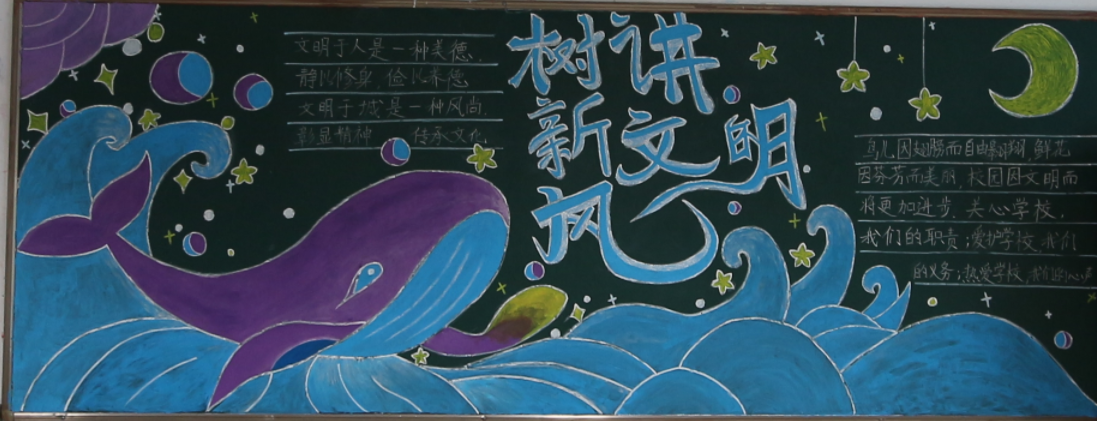 文明于人是一种美德,
静以修身,俭以养德
文明于城是一种风尚,
彰显精神 传承文化
讲文明
树新风
鸟儿因翅膀而自由翱翔,鲜花
因芬芳而美丽,校园因文明而
将更加进步.关心学校,
我们的职责;爱护学校,我们
的义务;热爱学校,我们